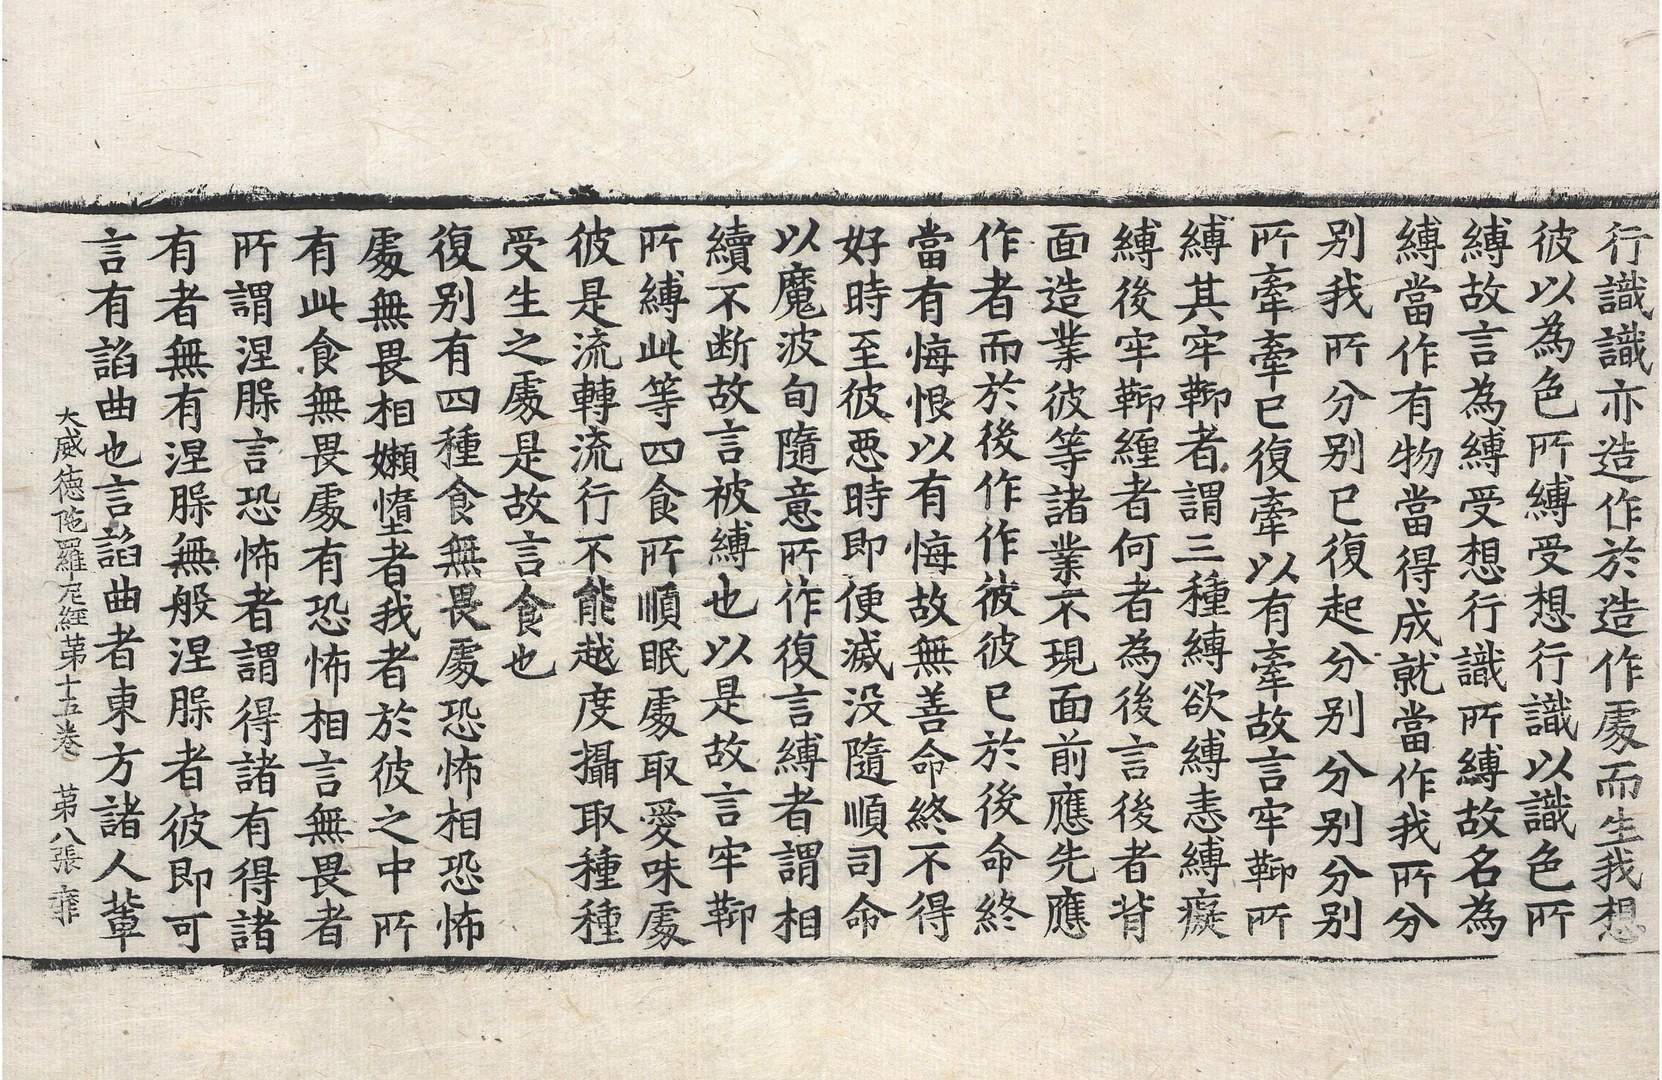 行識識亦造作於造作處而生我想
彼以為色所縛受想行識以識色所
縛故言為縛受想行識所縛故名為
縛當作有物當得成就當作我所分
别我所分别已復起分别分别分别
所牽牽已復牽以有牽故言牢鞕所
縛其牢鞕者謂三種縛欲縛恚縛癡
縛後牢鞕纏者何者為後言後者背
面造業彼等諸業不現面前應先應
作者而於後作作彼彼已於後命終
當有悔恨以有悔故無善命終不得
好時至彼惡時即便滅没隨順司命
以魔波旬隨意所作復言縛者謂相
續不断故言被縛也以是故言牢鞕
所縛此等四食所順眠處取愛味處
彼是流轉流行不能越度攝取種種
受生之處是故言食也
復别有四種食無畏處恐怖相恐怖
處無畏相嬾惰者我者於彼之中所
有此食無畏處有恐怖相言無畏者
所謂涅槃言恐怖者謂得諸有得諸
有者無有涅槃無般涅槃者彼即可
言有諂曲也言諂曲者東方諸人輩
大威德陁羅尼經苐十五巻 苐八張 靡